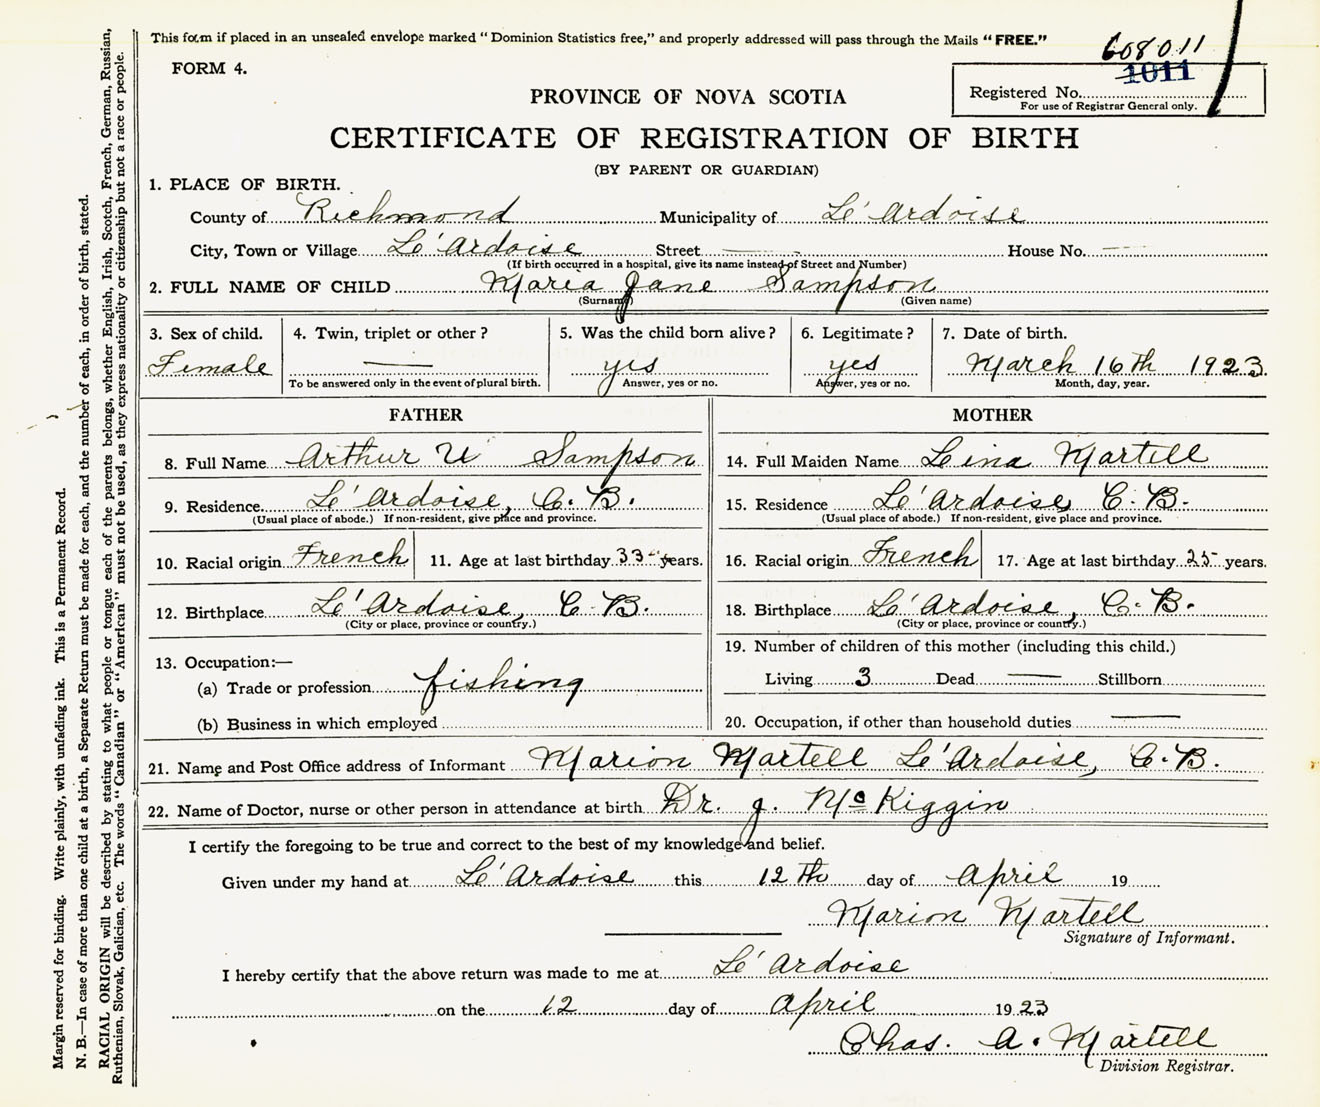 This form if placed in an unsealed envelope marked "Dominion Statistics free," and properly addressed will pass through the Mails "FREE."
608011
FORM 4.
1011
Registered No.
For use of Registrar General only.
PROVINCE OF NOVA SCOTIA
CERTIFICATE OF REGISTRATION OF BIRTH
(BY PARENT OR GUARDIAN)
1. PLACE OF BIRTH.
County of Richmond Municipality of Le'Ardoise
City, Town or Village Le'Ardoise Street — House No. —
(If birth occurred in a hospital, give its name instead of Street and Number)
2. FULL NAME OF CHILD Maria Jane Sampson
(Surname) (Given name)
3. Sex of child. 4. Twin, triplet or other? 5. Was the child born alive? 6. Legitimate? 7. Date of birth.
Female — yes yes March 16th 1923.
To be answered only in the event of plural birth. Answer, yes or no. Answer, yes or no. Month, day, year.
FATHER MOTHER
8. Full Name Arthur W Sampson 14. Full Maiden Name Lena Martell
9. Residence Le'Ardoise, C.B. 15. Residence Le'Ardoise, C.B.
(Usual place of abode.) If non-resident, give place and province. (Usual place of abode.) If non-resident, give place and province.
10. Racial origin French 11. Age at last birthday 33 years. 16. Racial origin French 17. Age at last birthday 25 years.
12. Birthplace Le'Ardoise, C.B. 18. Birthplace Le'Ardoise, C.B.
(City or place, province or country.) (City or place, province or country.)
13. Occupation:— 19. Number of children of this mother (including this child.)
(a) Trade or profession fishing Living 3 Dead — Stillborn
(b) Business in which employed 20. Occupation, if other than household duties —
21. Name and Post Office address of Informant Marion Martell Le'Ardoise, C.B.
22. Name of Doctor, nurse or other person in attendance at birth Dr. J. McKiggin
I certify the foregoing to be true and correct to the best of my knowledge and belief.
Given under my hand at Le'Ardoise this 12th day of April 19
Marion Martell
Signature of Informant.
I hereby certify that the above return was made to me at Le'Ardoise
on the 12 day of April 1923
Chas. A. Martell
Division Registrar.
Margin reserved for binding. Write plainly, with unfading ink. This is a Permanent Record.
N. B.—In case of more than one child at a birth, a Separate Return must be made for each, and the number of each, in order of birth, stated.
RACIAL ORIGIN will be described by stating to what people or tongue each of the parents belongs, whether English, Irish, Scotch, French, German, Russian,
Ruthenian, Slovak, Galician, etc. The words "Canadian" or "American" must not be used, as they express nationality or citizenship but not a race or people.